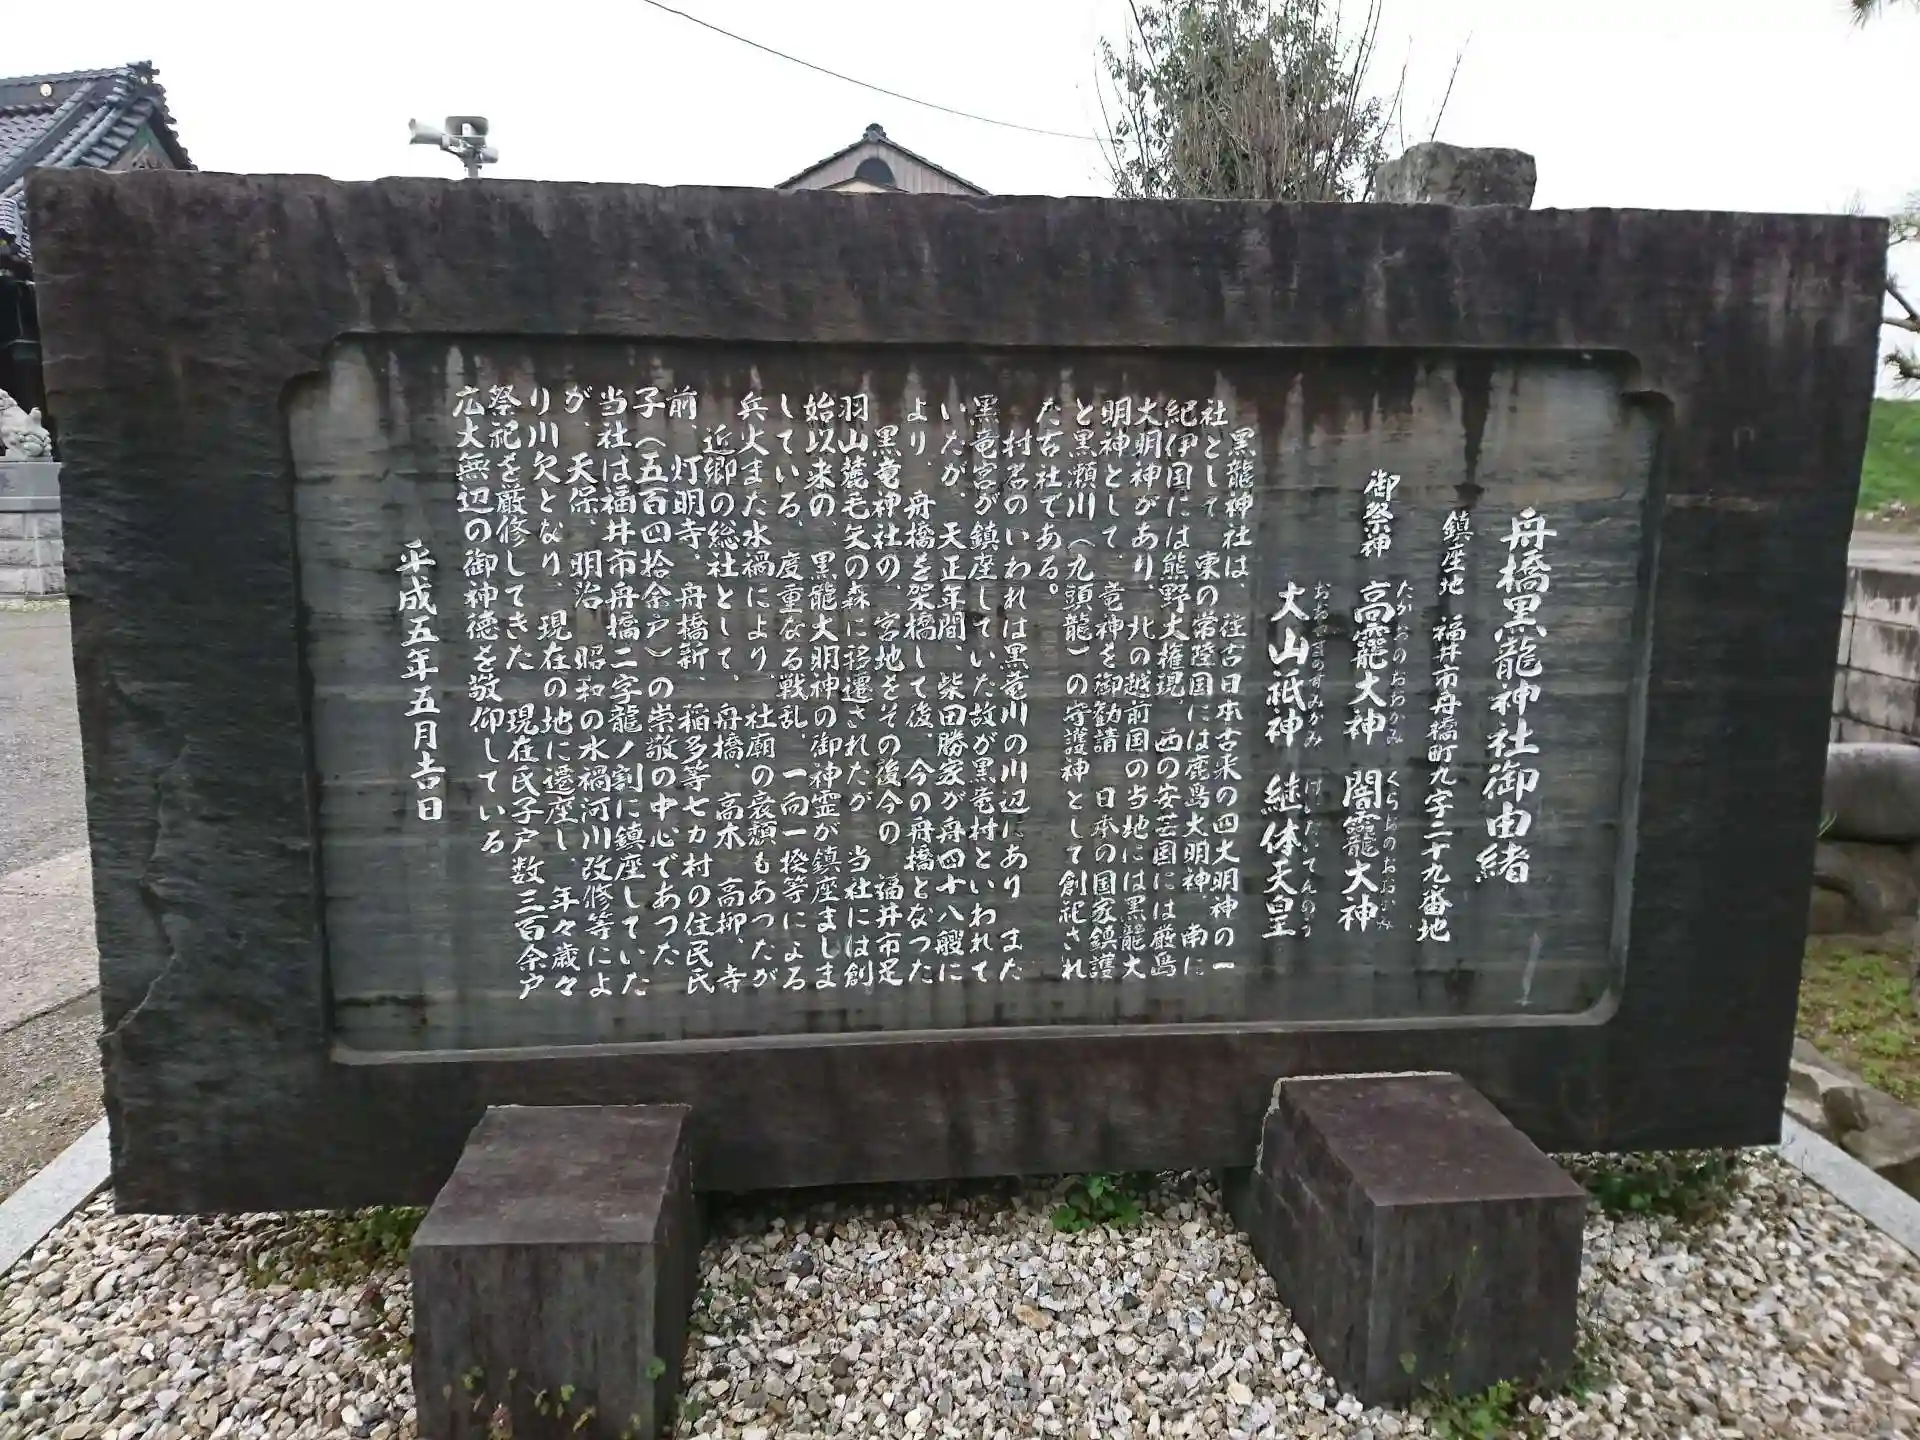 舟橋黒龍神社御由緒
鎮座地　福井市舟橋町九字二十九番地
御祭神　高龗大神　闇龗大神
たかおのおおかみ　くらおのおおかみ
大山祇神　継体天皇
おおやまのすみかみ　けいたいてんのう
黒龍神社は、往古日本古来の四大明神の一
社として、東の常陸国には鹿島大明神、南に
紀伊国には熊野大権現、西の安芸国には厳島
大明神があり、北の越前国の当地には黒龍大
明神として、竜神を御勧請　日本の国家鎮護
と黒瀬川（九頭龍）の守護神として創祀され
た古社である。
村名のいわれは黒竜川の川辺にあり　また
黒竜宮が鎮座していた故が黒竜村といわれて
いたが、天正年間、柴田勝家が舟四十八艘に
より、舟橋を架橋して後、今の舟橋となつた
黒竜神社の　宮地をその後今の　福井市足
羽山麓毛矢の森に移遷されたが　当社には創
始以来の、黒龍大明神の御神霊が鎮座ましま
している、度重なる戦乱、一向一揆等による
兵火また水禍により、社廟の衰頽もあつたが
近郷の総社として、舟橋、高木、高柳、寺
前、灯明寺、舟橋新、稲多等七カ村の住民氏
子（五百四拾余戸）の崇敬の中心であつた
当社は福井市舟橋二字龍ノ割に鎮座していた
が、天保、明治　昭和の水禍河川改修等によ
り川欠となり、現在の地に遷座し、年々歳々
祭祀を厳修してきた　現在氏子戸数三百余戸
広大無辺の御神徳を敬仰している
平成五年五月吉日